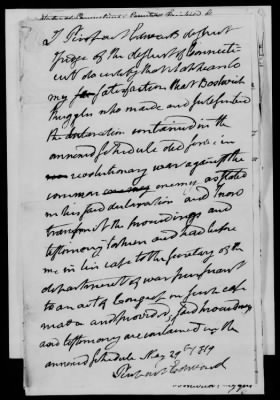 I Pierpont Edwards district
Judge of the district of Connecti-
cut do certify that it appears to
my satisfaction that Bostwick
Ruggles who made and subscribed
the declaration contained in the
annexed schedule did serve in
revolutionary war against the
common enemy as stated
in his said declaration and I now
transmit the proceedings and
testimony taken and had before
me in his case to the Secretary of the
department of war pursuant
to an act of Congress in such case
made and provided, said proceedings
and testimony are contained in the
annexed schedule May 29th 1819
Pierpont Edwards